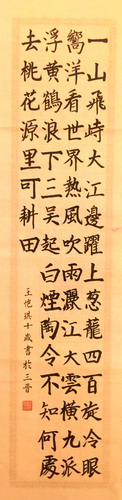 一山飛峙大江邊躍上葱蘢四百旋冷眼
嚮洋看世界熱風吹雨灑江天雲橫九派
浮黄鶴浪下三吴起白煙陶令不知何處
去桃花源里可耕田
王愷琪十歲書於三晉